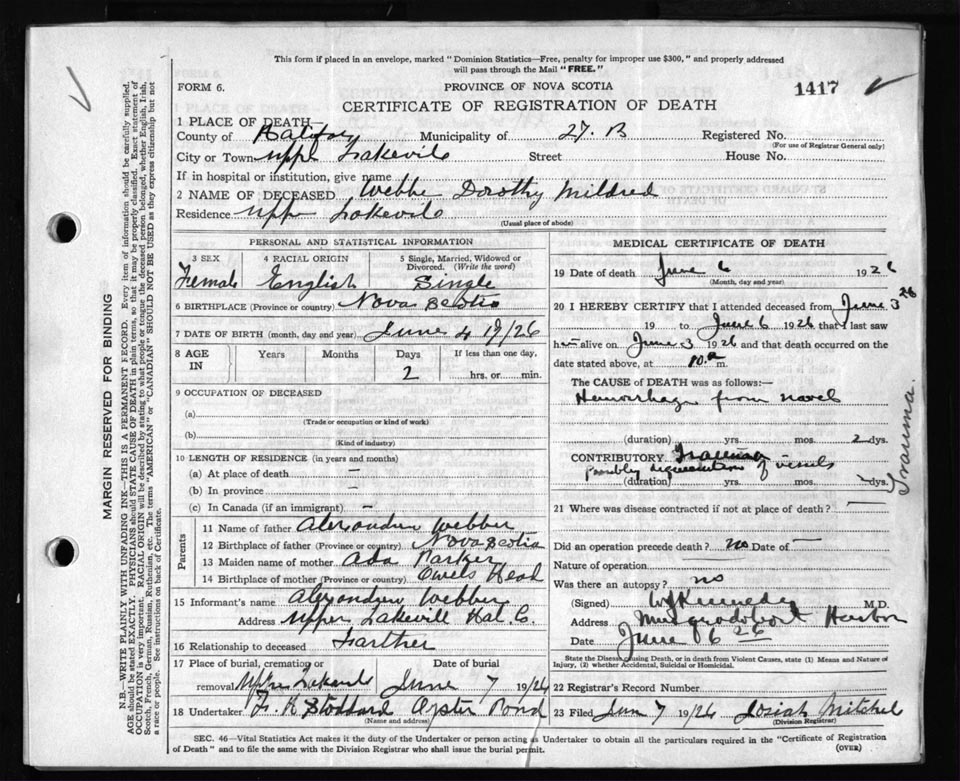 This form if placed in an envelope, marked "Dominion Statistics—Free, penalty for improper use $300," and properly addressed
will pass through the Mail "FREE."
FORM 6.
PROVINCE OF NOVA SCOTIA
1417
CERTIFICATE OF REGISTRATION OF DEATH
1 PLACE OF DEATH—
County of Halifax Municipality of 27. B Registered No.
(For use of Registrar General only)
City or Town Upper Lakevile Street House No.
If in hospital or institution, give name
2 NAME OF DECEASED Webber Dorothy Mildred
Residence Upper Lakevile
(Usual place of abode)
PERSONAL AND STATISTICAL INFORMATION
3 SEX 4 RACIAL ORIGIN 5 Single, Married, Widowed or
Divorced. (Write the word)
Female English Single
6 BIRTHPLACE (Province or country) Nova Scotia
7 DATE OF BIRTH (month, day and year) June 4 19/26
8 AGE IN Years Months Days If less than one day,
2 hrs. or min.
9 OCCUPATION OF DECEASED
(a)
(Trade or occupation or kind of work)
(b)
(Kind of industry)
10 LENGTH OF RESIDENCE (in years and months)
(a) At place of death —
(b) In province —
(c) In Canada (if an immigrant) —
Parents
11 Name of father Alexander Webber
12 Birthplace of father (Province or country) Nova Scotia
13 Maiden name of mother Ada Parker
14 Birthplace of mother (Province or country) Owels Head
15 Informant's name Alexandrew Webber
Address Upper Lakevill Hal. C.
16 Relationship to deceased Farther
17 Place of burial, cremation or Date of burial
removal Upper Lakevile June 7 19/26
18 Undertaker F. A Stoddard Oyster Pond
(Name and address)
MEDICAL CERTIFICATE OF DEATH
19 Date of death June 6 1926
(Month, day and year)
20 I HEREBY CERTIFY that I attended deceased from June 3
26
19 to June 6 1926 that I last saw
h alive on June 3 1926 and that death occurred on the
date stated above, at 10.a m.
The CAUSE of DEATH was as follows:—
Hemorrhage from navel
(duration) yrs. mos. 2 dys.
CONTRIBUTORY Trauma
possibly of vessels
(duration) yrs. mos. dys.
Trauma.
21 Where was disease contracted if not at place of death? —
Did an operation precede death? no Date of —
Nature of operation
Was there an autopsy? no
(Signed) W Kennedy M.D.
Address Musquodoboit Harbor
Date June 6 26
State the Disease Causing Death, or in death from Violent Causes, state (1) Means and Nature of
Injury, (2) whether Accidental, Suicidal or Homicidal.
22 Registrar's Record Number
23 Filed Jun 7 19/26 Josiah Mitchel
(Division Registrar)
SEC. 46—Vital Statistics Act makes it the duty of the Undertaker or person acting as Undertaker to obtain all the particulars required in the "Certificate of Registration
of Death" and to file the same with the Division Registrar who shall issue the burial permit.
(OVER)
MARGIN RESERVED FOR BINDING
N.B.—WRITE PLAINLY WITH UNFADING INK—THIS IS A PERMANENT RECORD. Every item of information should be carefully supplied.
AGE should be stated EXACTLY. PHYSICIANS should STATE CAUSE OF DEATH in plain terms, so that it may be properly classified. Exact statement of
OCCUPATION is very important. RACIAL ORIGIN will be described by stating to what people or tongue the deceased person belonged, whether English, Irish,
Scotch, French, German, Russian, Ruthenian, etc. The terms "AMERICAN" or "CANADIAN" SHOULD NOT BE USED as they express citizenship but not
a race or people. See instructions on back of Certificate.